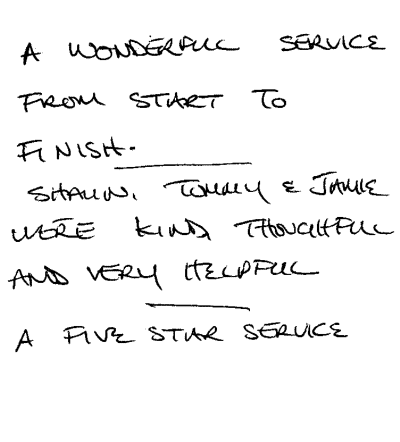 A WONDERFUL SERVICE
FROM START TO
FINISH.
SHAUN, TOMMY & JAMIE
WERE KIND, THOUGHTFUL
AND VERY HELPFUL
A FIVE STAR SERVICE